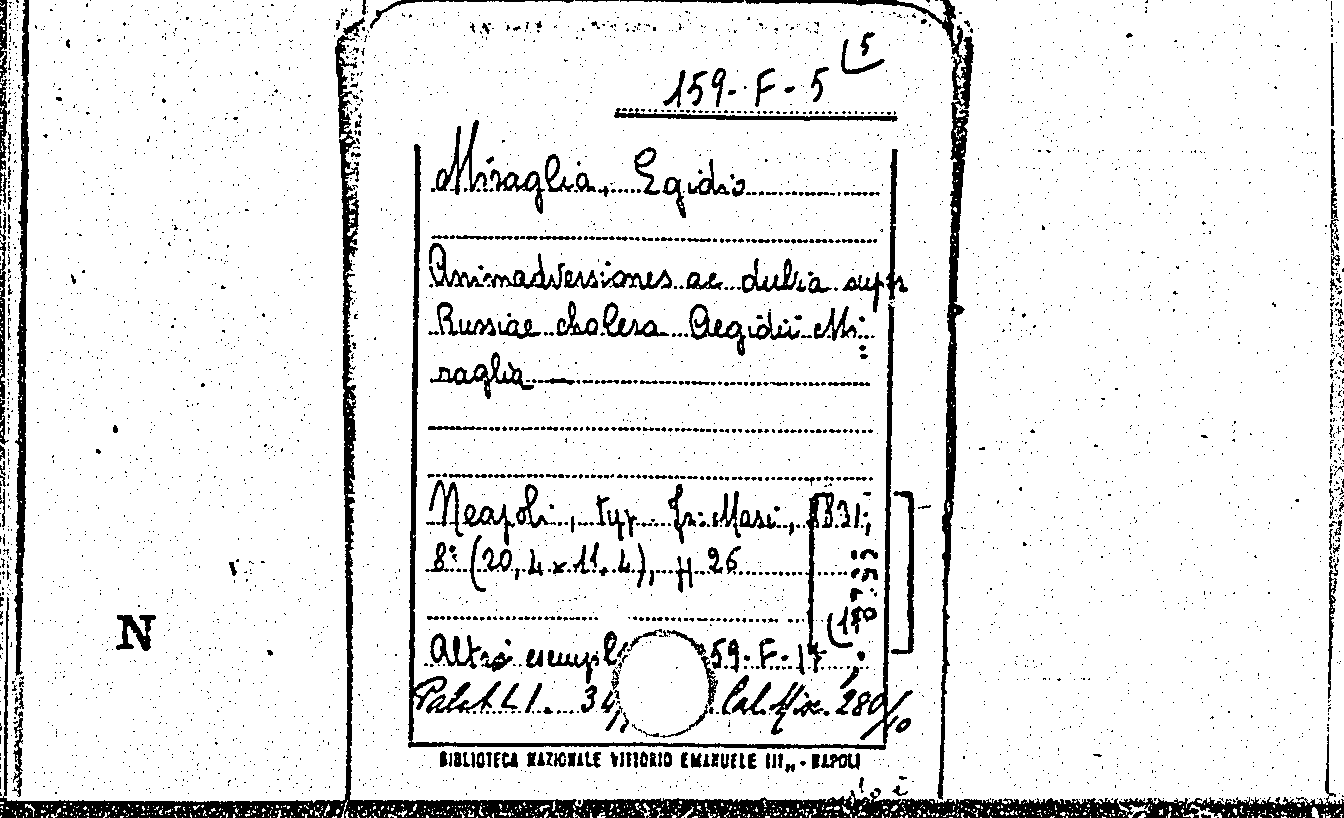 159-F-5 (5
Miraglia, Egidio
Animadversiones ac dubia supr
Russiae cholera Aegidii Mi=
raglia —
Neapoli, typ. Fr. Masi, 1831;
8° (20,4 x 11.4), pp 26
Altro esempl 59-F-17
(1
Palat L I. 34 Cal. Misc. 280/10
BIBLIOTECA NAZIONALE VITTORIO EMANUELE III,, - NAPOLI
N